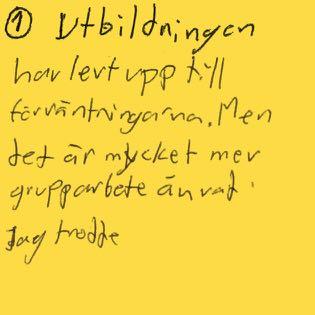 ① Utbildningen
har levt upp till
förväntningarna. Men
det är mycket mer
grupparbete än vad
jag trodde